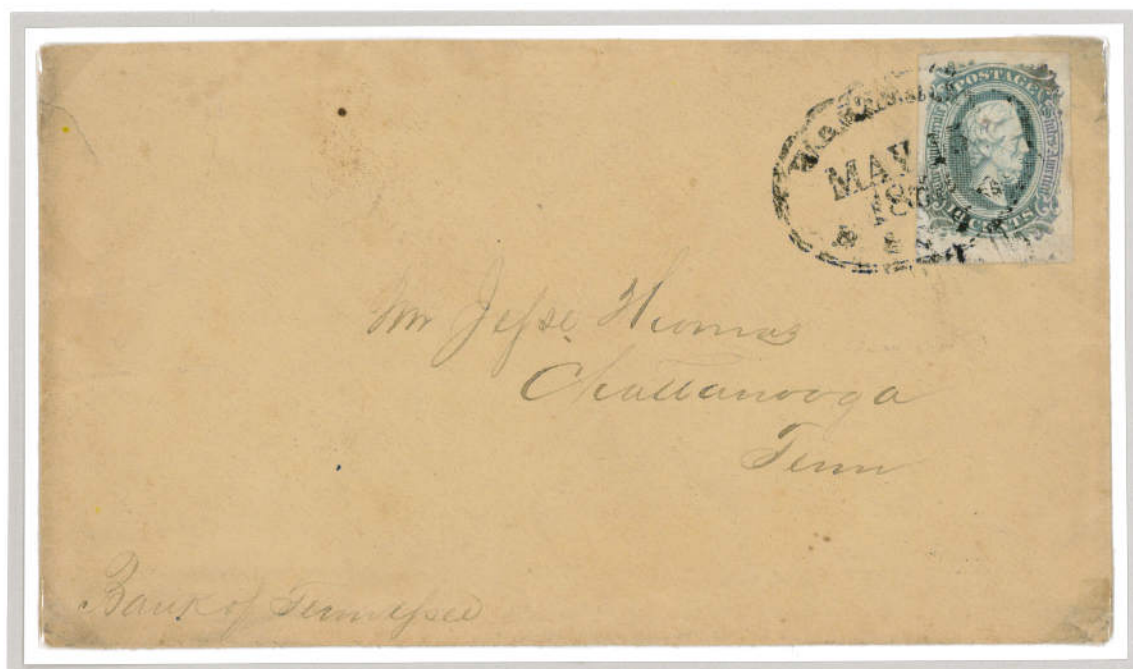 MAY
186
POSTAGE
CENTS
Mr Jesse Thomas
Chattanooga
Tenn
Bank of Tennessee